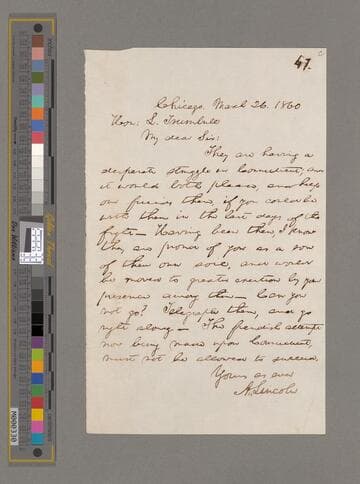 47.
Chicago, March 26. 1860
Hon: L. Trumbull
My dear Sir:
They are having a
desperate struggle in Connecticut; and
it would both please, and help
our friends there, if you could be
with them in the last days of the
fight— Having been there, I know
they are proud of you as a son
of their own soil, and would
be moved to greater exertion by your
presence among them— Can you
not go? Telegraph them, and go
right along— The fiendish attempt
now being made upon Connecticut,
must not be allowed to succeed.
Yours as ever
A. Lincoln